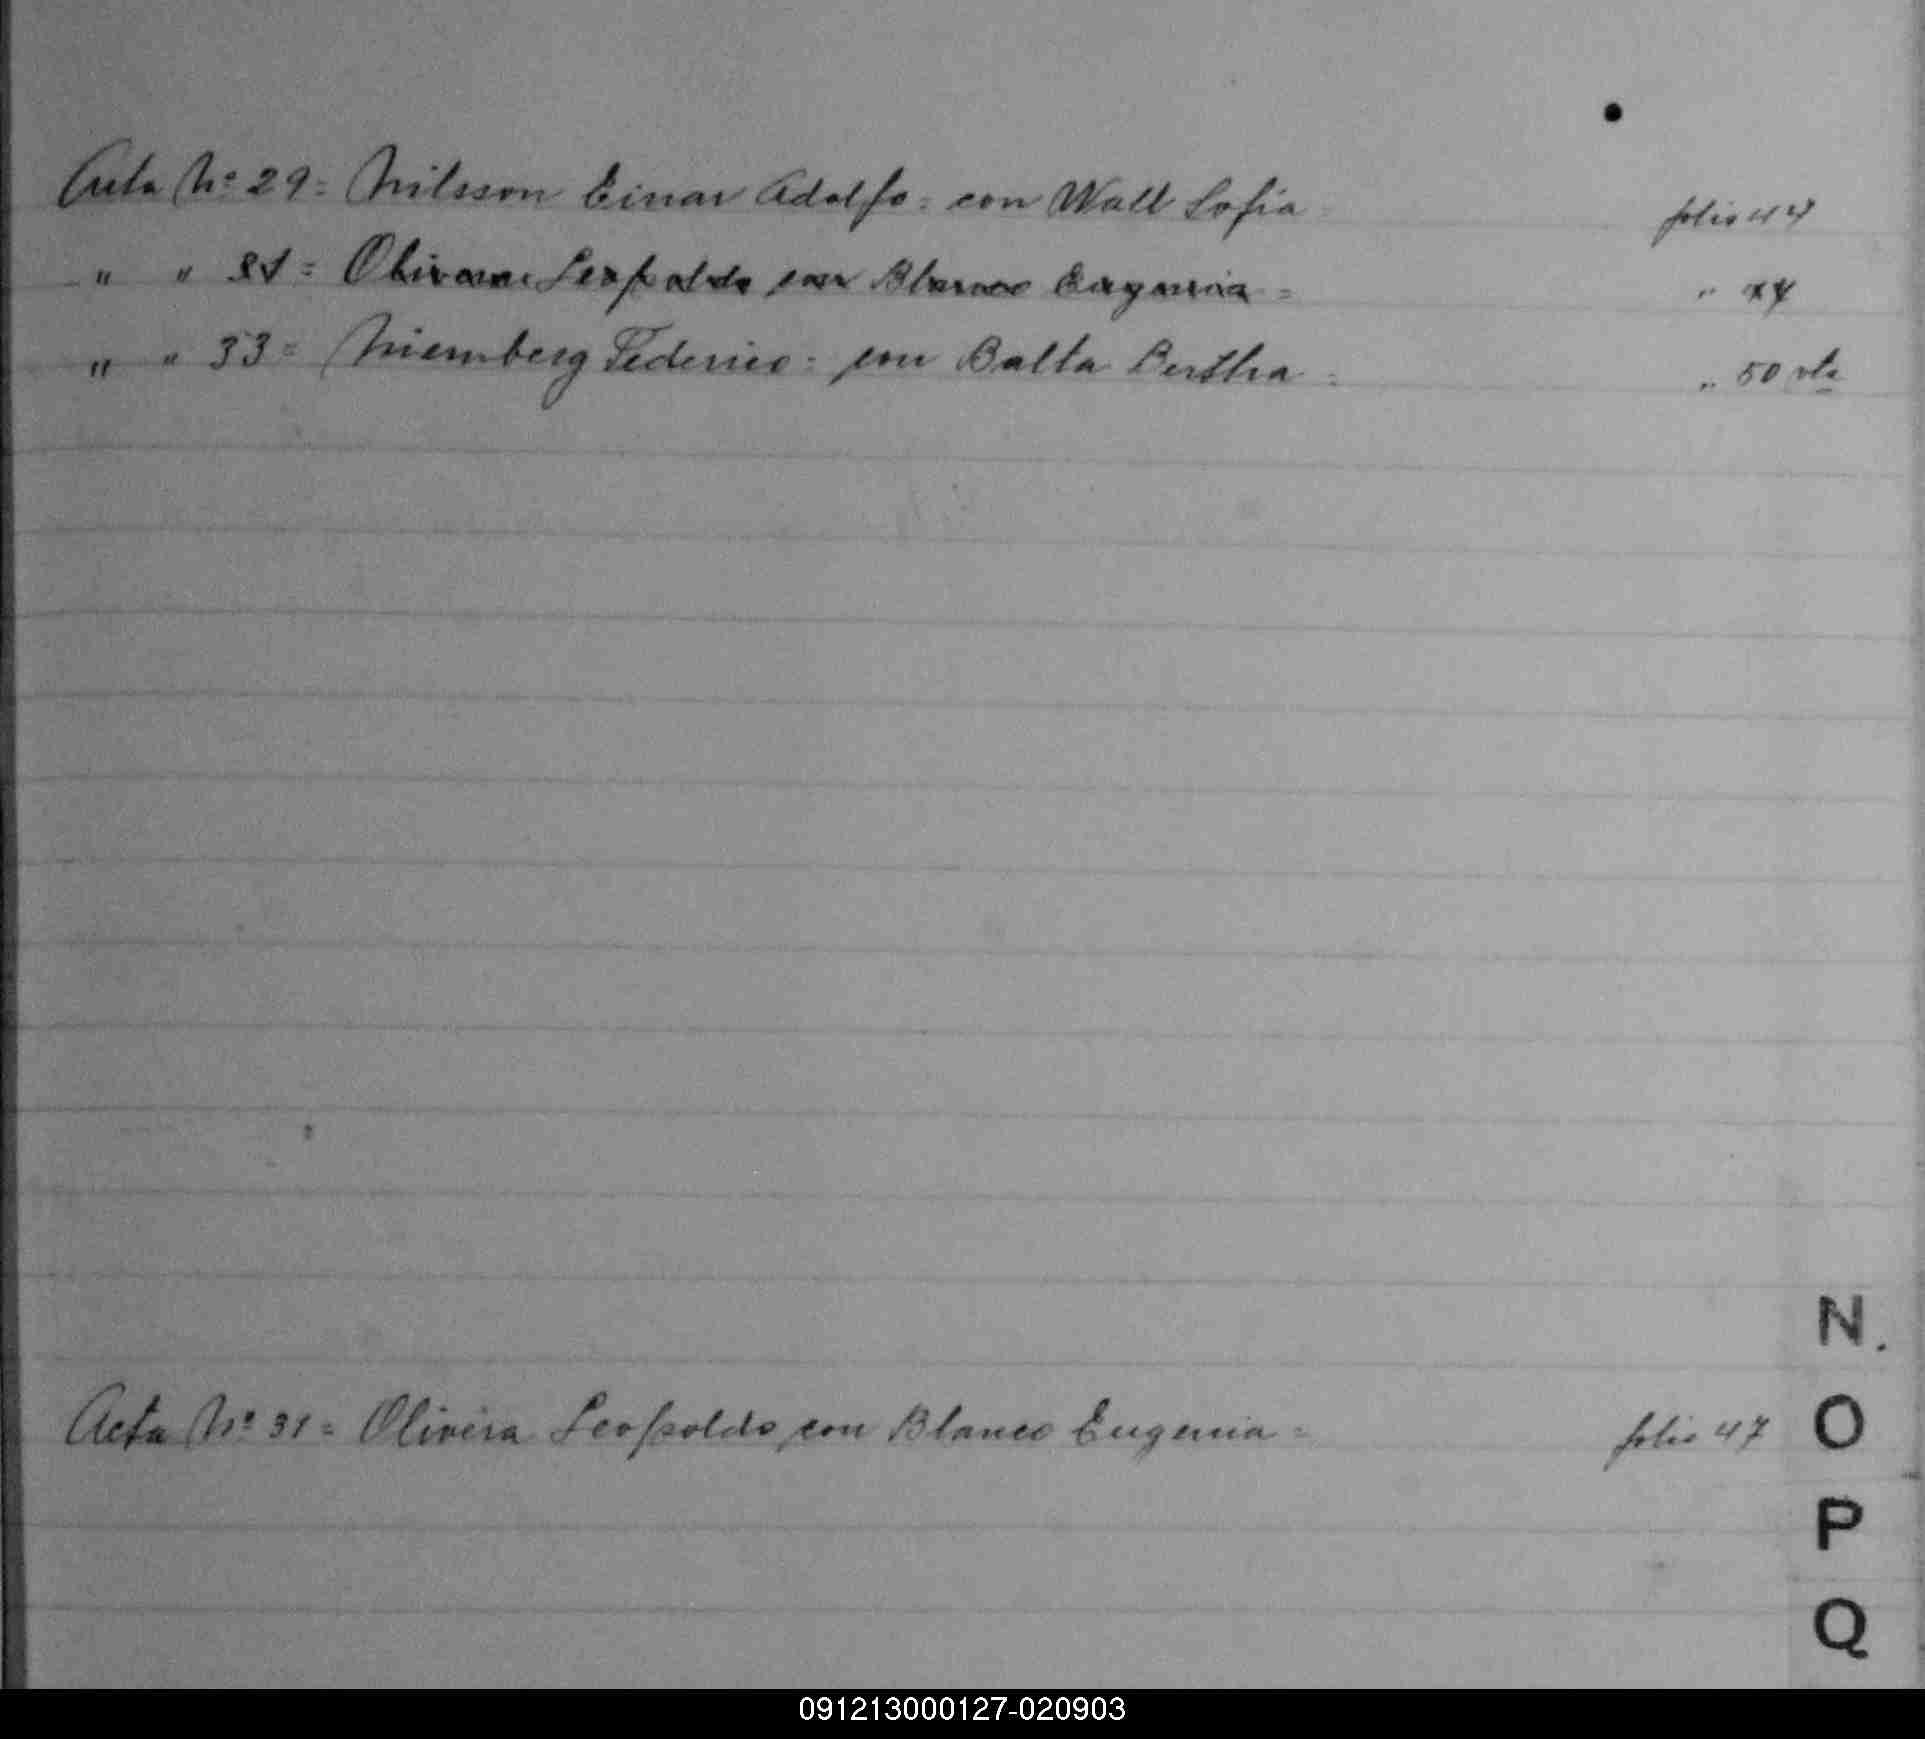 Acta Nº 29= Nilsson Einar Adolfo= con Wall Sofia= folio 44
" " 31= Olivera Leopoldo con Blanco Eugenia= " 47
" " 33= Niemberg Federico= con Balta Bertha= " 50 vta
N.
Acta Nº 31= Olivera Leopoldo con Blanco Eugenia= folio 47
O
P
Q
091213000127-020903